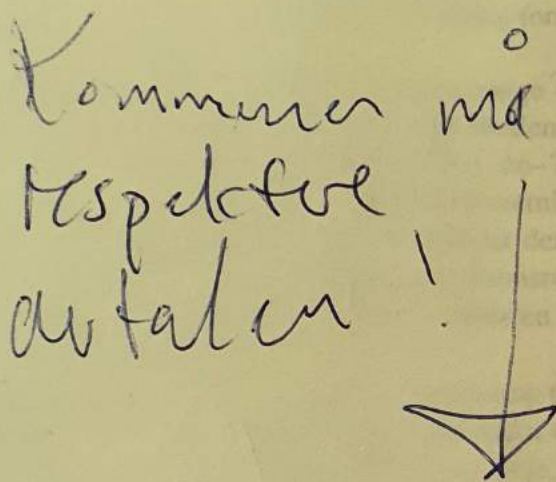 Kommunen må
respektere
avtalen!